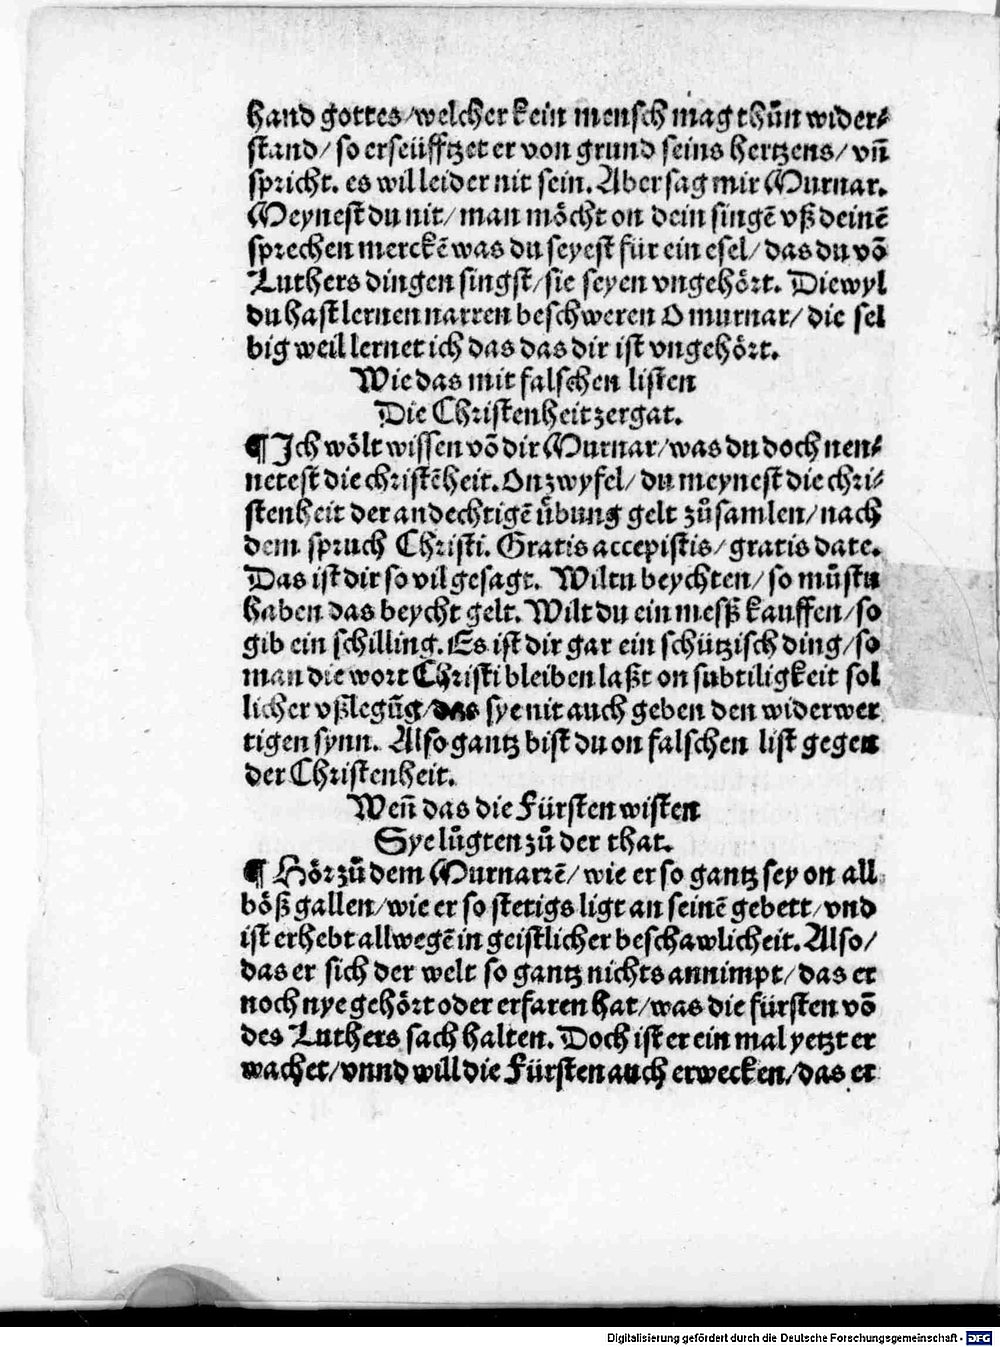 hand gottes/welcher kein mensch mag thůn wider⸗
stand/ so erseüfftzet er von grund seins hertzens/ vñ
spricht. es wil leider nit sein. Aber sag mir Murnar.
Meynest du nit/ man möcht on dein singẽ vß deinẽ
sprechen merckẽ was du seyest für ein esel/ das du võ
Luthers dingen singst/sie seyen vngehört. Diewyl
du hast lernen narren beschweren O murnar/ die sel
big weil lernet ich das das dir ist vngehört.
Wie das mit falschen listen
Die Christenheit zergat.
¶ Ich wölt wissen võ dir Murnar/was du doch nen⸗
netest die christẽheit. On zwyfel/ du meynest die chri⸗
stenheit der andechtigẽ übung gelt zů samlen/nach
dem spruch Christi. Gratis accepistis/ gratis date.
Das ist dir so vil gesagt. Wiltu beychten/ so můstu
haben das beycht gelt. Wilt du ein meß kauffen/so
gib ein schilling. Es ist dir gar ein schützisch ding/so
man die wort Christi bleiben laßt on subtiligkeit sol
licher vßlegũg/das sye nit auch geben den widerwer
tigen synn. Also gantz bist du on falschen list gegen
der Christenheit.
Weñ das die Fürsten wisten
Sye lůgten zů der that.
¶ Hör zů dem Murnarrẽ/ wie er so gantz sey on all
böß gallen/wie er so stetigs ligt an seinẽ gebett/vnd
ist erhebt allwegẽ in geistlicher beschawlicheit. Also/
das er sich der welt so gantz nichts annimpt/das er
noch nye gehört oder erfaren hat/was die fürsten võ
des Luthers sach halten. Doch ist er ein mal yetzt er
wachet/vnnd will die Fürsten auch erwecken/das er
Digitalisierung gefördert durch die Deutsche Forschungsgemeinschaft - DFG